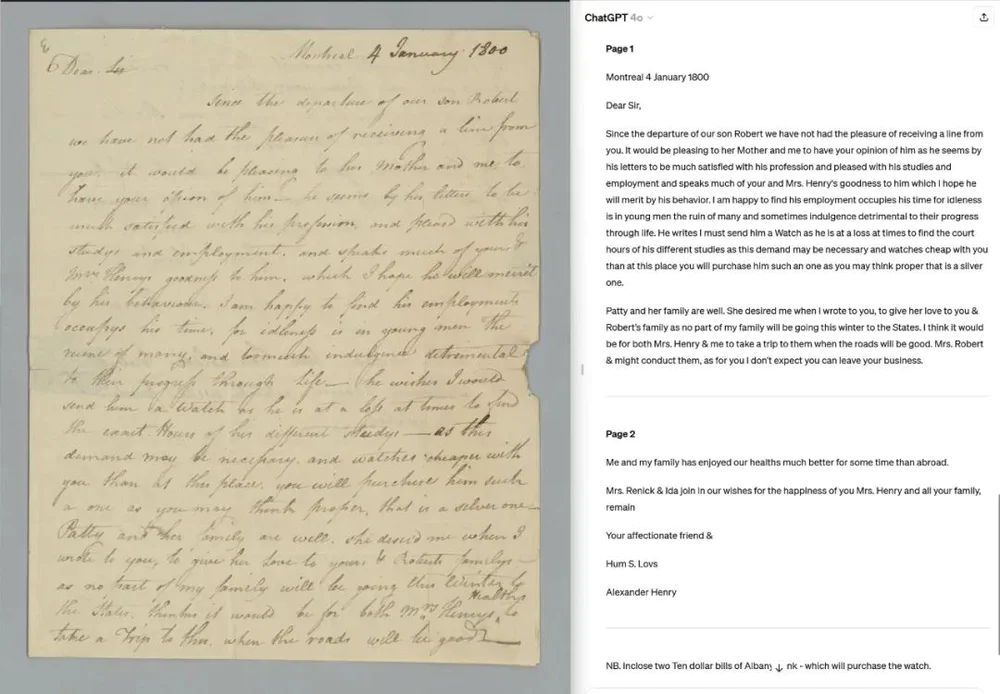 Montreal 4 January 1800
Dear Sir
Since the departure of our son Robert
we have not had the pleasure of receiving a line from
you. it would be pleasing to his Mother and me to
have your opion of him — he seems by his letters to be
much satisfied with his profession, and pleased with his
studys and employment, and speaks much of yours &
Mrs Henrys goodness to him, which I hope he will merrit
by his behaviour. I am happy to find his employments
occupys his time, for idleness is in young men the
ruine of many, and toomuch indulgence detremental
to their progress through Life — he wishes I would
send him a Watch as he is at a loss at times to find
the exact Hours of his different studys — as this
demand may be necessary, and watches cheaper with
you than at this place, you will purchase him such
a one as you may think proper, that is a silver one —
Patty and her family are well. she desired me when I
wrote to you, to give her Love to yours & Roberts familys —
as no part of my family will be going this Winter to
the States, thinks it would be for both Mrs Henrys Healths to
take a Trip to this, when the roads will be good
ChatGPT 4o
Page 1
Montreal 4 January 1800
Dear Sir,
Since the departure of our son Robert we have not had the pleasure of receiving a line from
you. It would be pleasing to her Mother and me to have your opinion of him as he seems by
his letters to be much satisfied with his profession and pleased with his studies and
employment and speaks much of your and Mrs. Henry's goodness to him which I hope he
will merit by his behavior. I am happy to find his employment occupies his time for idleness
is in young men the ruin of many and sometimes indulgence detrimental to their progress
through life. He writes I must send him a Watch as he is at a loss at times to find the court
hours of his different studies as this demand may be necessary and watches cheap with you
than at this place you will purchase him such an one as you may think proper that is a silver
one.
Patty and her family are well. She desired me when I wrote to you, to give her love to you &
Robert's family as no part of my family will be going this winter to the States. I think it would
be for both Mrs. Henry & me to take a trip to them when the roads will be good. Mrs. Robert
& might conduct them, as for you I don't expect you can leave your business.
Page 2
Me and my family has enjoyed our healths much better for some time than abroad.
Mrs. Renick & Ida join in our wishes for the happiness of you Mrs. Henry and all your family,
remain
Your affectionate friend &
Hum S. Lovs
Alexander Henry
NB. Inclose two Ten dollar bills of Alban nk - which will purchase the watch.